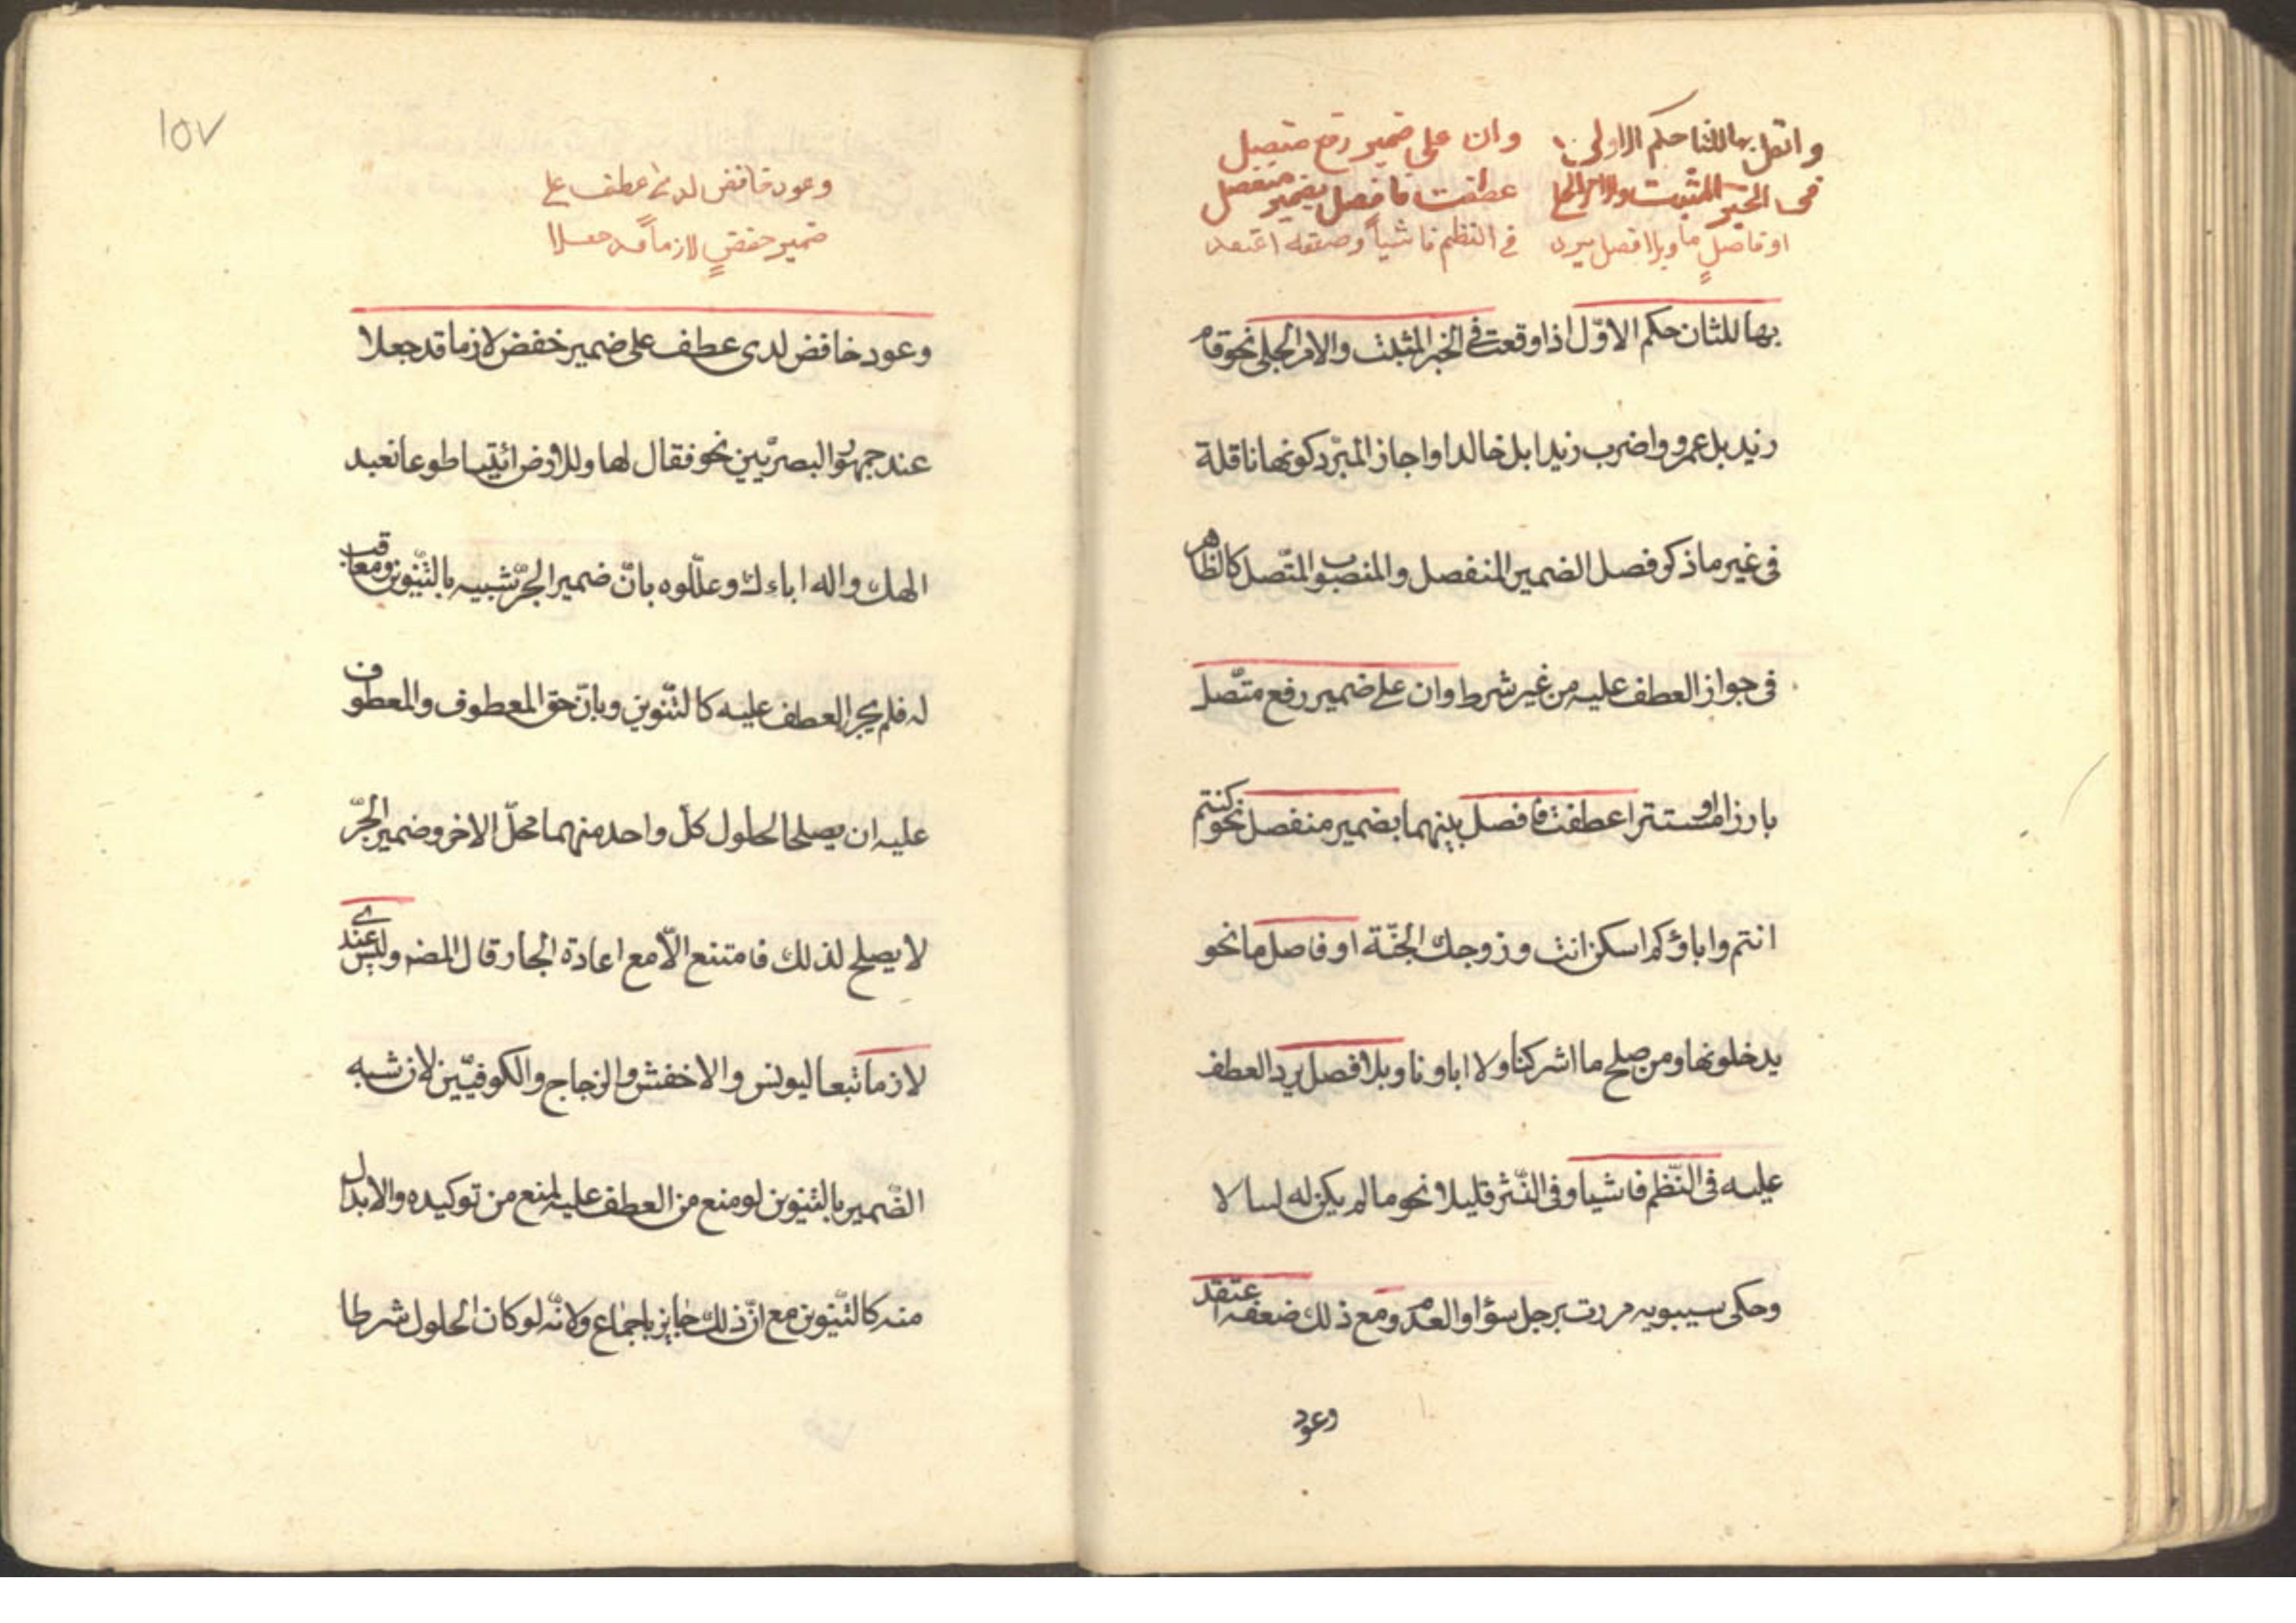 وانقل بها للثان حكم الاول وان على ضمير رفع متصل
فى الخبر المثبت والامر الجلي عطفت فافصل بضمير منفصل
او فاصلٍ ما وبلا فصل يرد فى النظم فاشياً وضعفه اعتقد
بها للثان حكم الاوّل اذا وقعت فى الخبر المثبت والامر الجلى نحو قام
زيد بل عمرو واضرب زيدا بل خالدا واجاز المبّرد كونها ناقلة
فى غير ما ذكر فصل الضمير المنفصل والمنصوب المتّصل كالظاهر
فى جواز العطف عليه من غير شرط وان على ضمير رفع متّصل
بارزا او مستترا عطفت فافصل بينهما بضمير منفصل نحو كنتم
انتم واباؤكم اسكن انت وزوجك الجنّة او فاصل ما نحو
يدخلونها ومن صلح ما اشركنا ولا اباونا وبلا فصل يرد العطف
عليه فى النّظم فاشيا وفى النّثر قليلا نحو ما لم يكن له لسا لا
وحكى سيبويه مررت برجل سؤا والعدم ومع ذلك ضعفه اعتقد
وعود
١٥٧
وعود خافض لدى عطف على
ضمير خفضٍ لازماً قد جعلا
وعود خافض لدى عطف على ضمير خفض لازما قد جعلا
عند جمهور البصريّين نحو فقال لها وللارض ائتيا طوعا نعبد
الهك واله اباءك وعلّلوه بانّ ضمير الجرّ شبيه بالتّنوين ومعاقب
له فلم يجز العطف عليه كالتّنوين وبانّ حق المعطوف والمعطوف
عليه ان يصلحا لحلول كلّ واحد منهما محلّ الاخر وضمير الجّر
لا يصلح لذلك فامتنع الّا مع اعادة الجار قال المض وليس عندى
لازما تبعا ليونس والاخفش والزجاج والكوفيّين لان شبه
الضّمير بالتنوين لو منع من العطف عليه لمنع من توكيده والابدال
منه كالتّنوين مع انّ ذلك جايز باجماع ولانّه لو كان الحلول شرطا